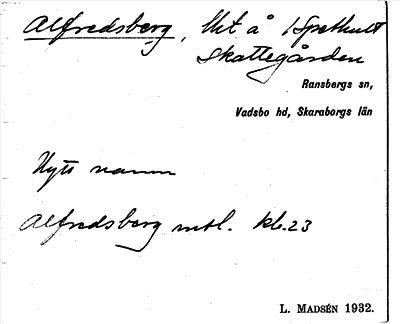 Alfredsberg, Uht å 1 Spethult
Skattegården
Ransbergs sn,
Vadsbo hd, Skaraborgs län
Nytt namn
Alfredsberg mtl. kb. 23
L. MADSÉN 1932.